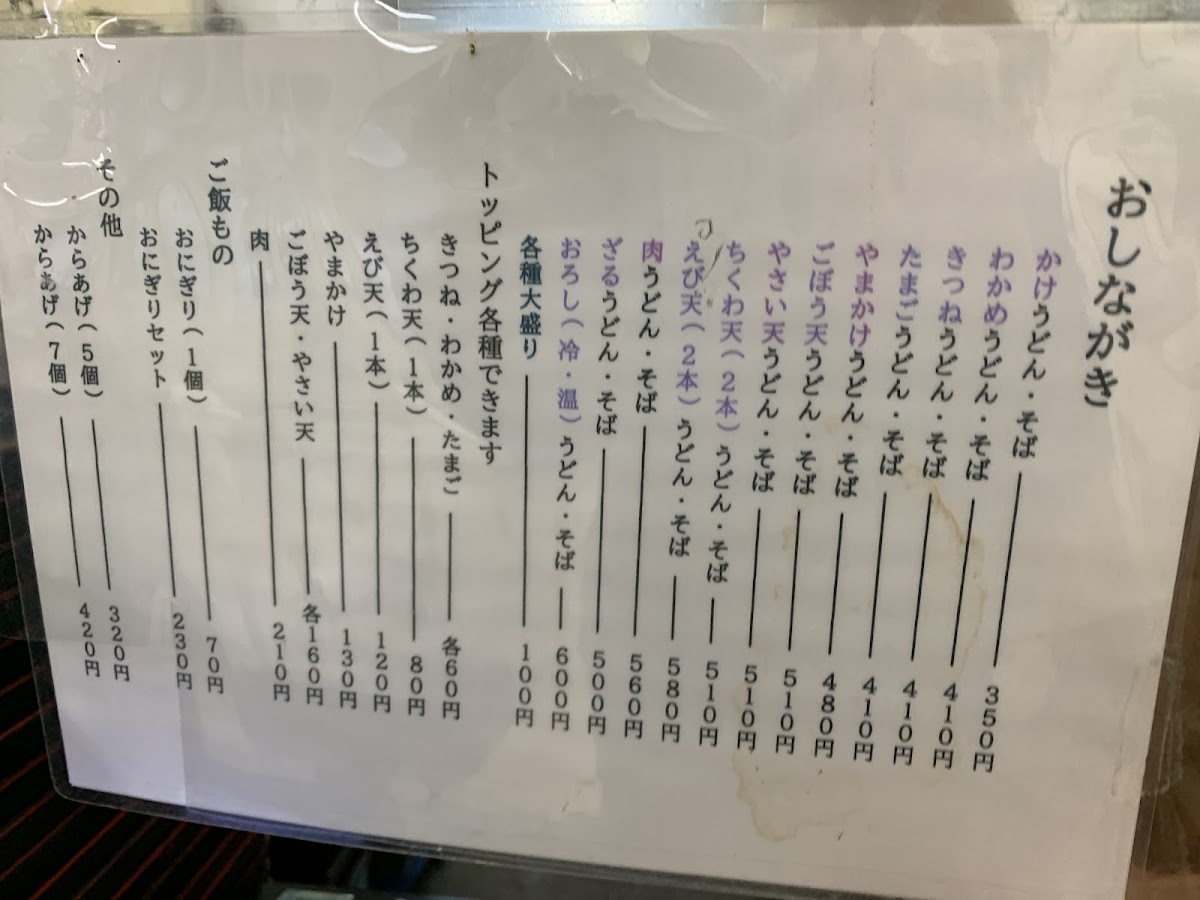 おしながき
かけうどん・そば 350円
わかめうどん・そば 410円
きつねうどん・そば 410円
たまごうどん・そば 410円
やまかけうどん・そば 480円
ごぼう天うどん・そば 510円
やさい天うどん・そば 510円
ちくわ天(2本)うどん・そば 510円
えび天(2本)うどん・そば 580円
肉うどん・そば 560円
ざるうどん・そば 500円
おろし(冷・温)うどん・そば 600円
各種大盛り 100円
トッピング各種できます
きつね・わかめ・たまご 各60円
ちくわ天(1本) 80円
えび天(1本) 120円
やまかけ 130円
ごぼう天・やさい天 各160円
肉 210円
ご飯もの
おにぎり(1個) 70円
おにぎりセット 230円
その他
からあげ(5個) 320円
からあげ(7個) 420円